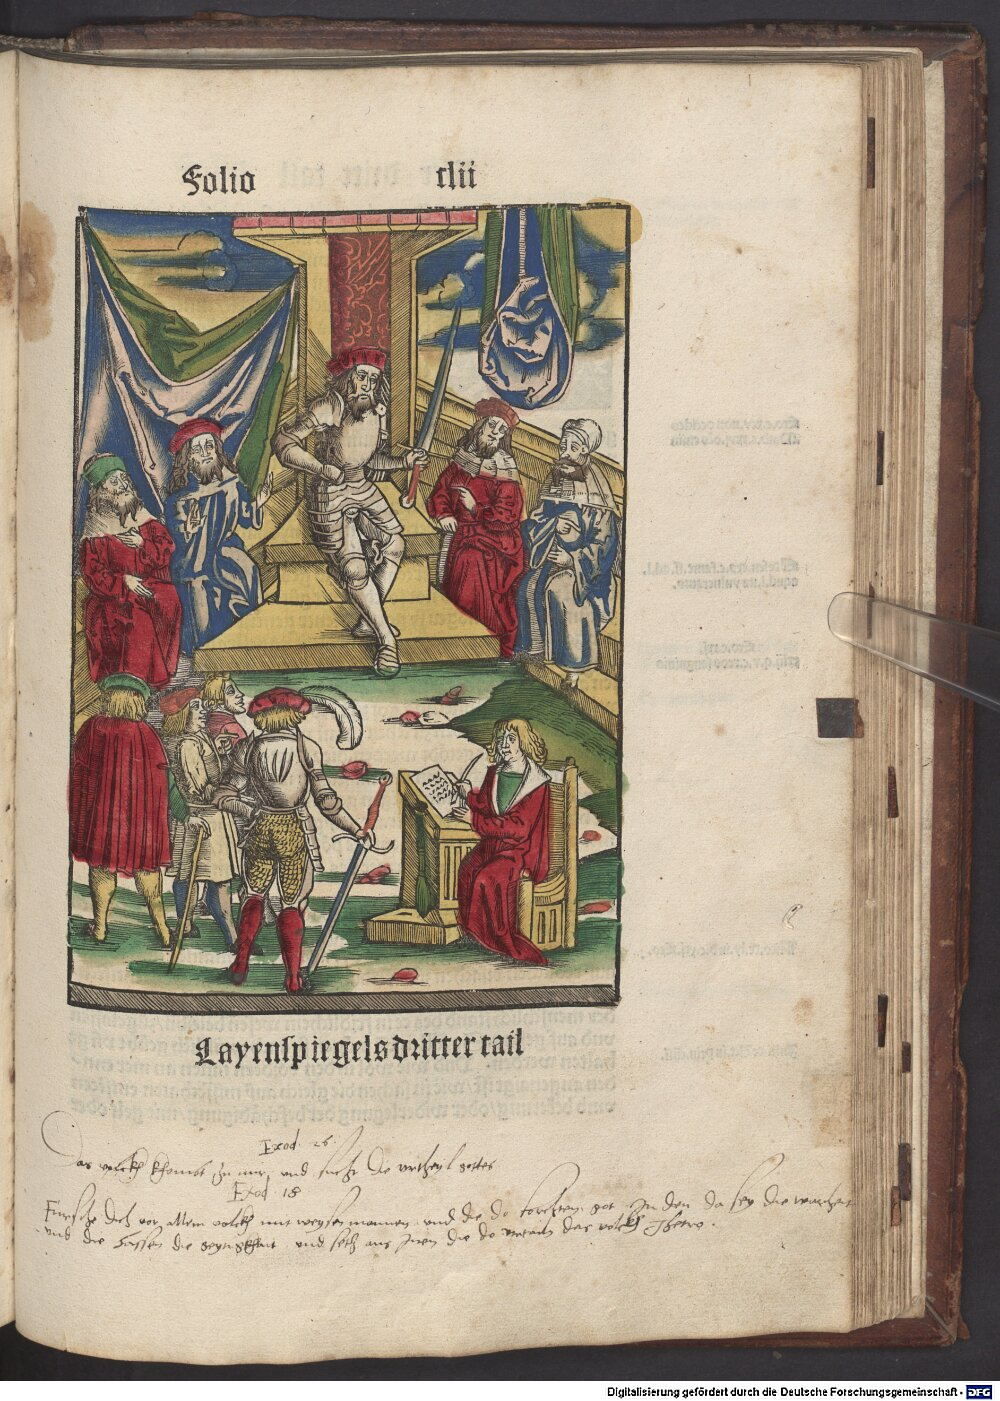 Folio clii
Layenspiegels dritter tail
Exod. 26.
Das volckh khombt zu mir, und sucht die urtheyl gottes
Exod 18
Fursihe dich vor allem volckh mit weysen mannen und die do forchten got In den da sey die warhait
und die hassen die geytigkhait und setz aus Inen die do urtailn das volckh Jhetro.
Digitalisierung gefördert durch die Deutsche Forschungsgemeinschaft - DFG